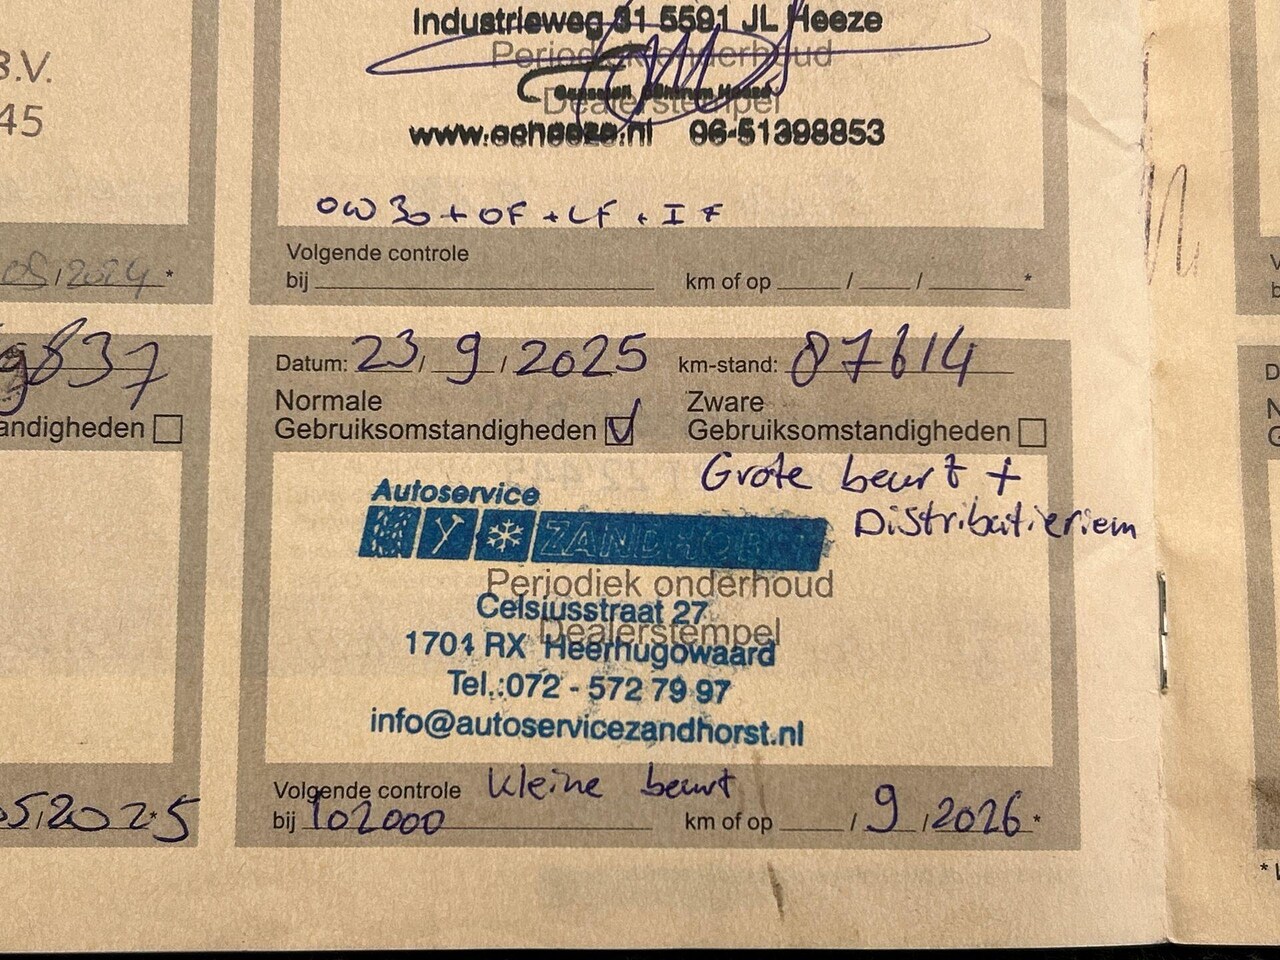 B.V.
45
05/2024 *
9837
andigheden
05/2025 *
Industrieweg 31 5591 JL Heeze
Periodiek onderhoud
Dealerstempel
06-51398853
0W30 + OF + LF + IF
Volgende controle
bij km of op / / *
Datum: 23/9/2025 km-stand: 87614
Normale Zware
Gebruiksomstandigheden Gebruiksomstandigheden
Grote beurt +
Distributieriem
Autoservice
ZANDHORST
Periodiek onderhoud
Celsiusstraat 27
Dealerstempel
1704 RX Heerhugowaard
Tel.:072 - 572 79 97
info@autoservicezandhorst.nl
Volgende controle Kleine beurt
bij 102000 km of op / 9 / 2026 *